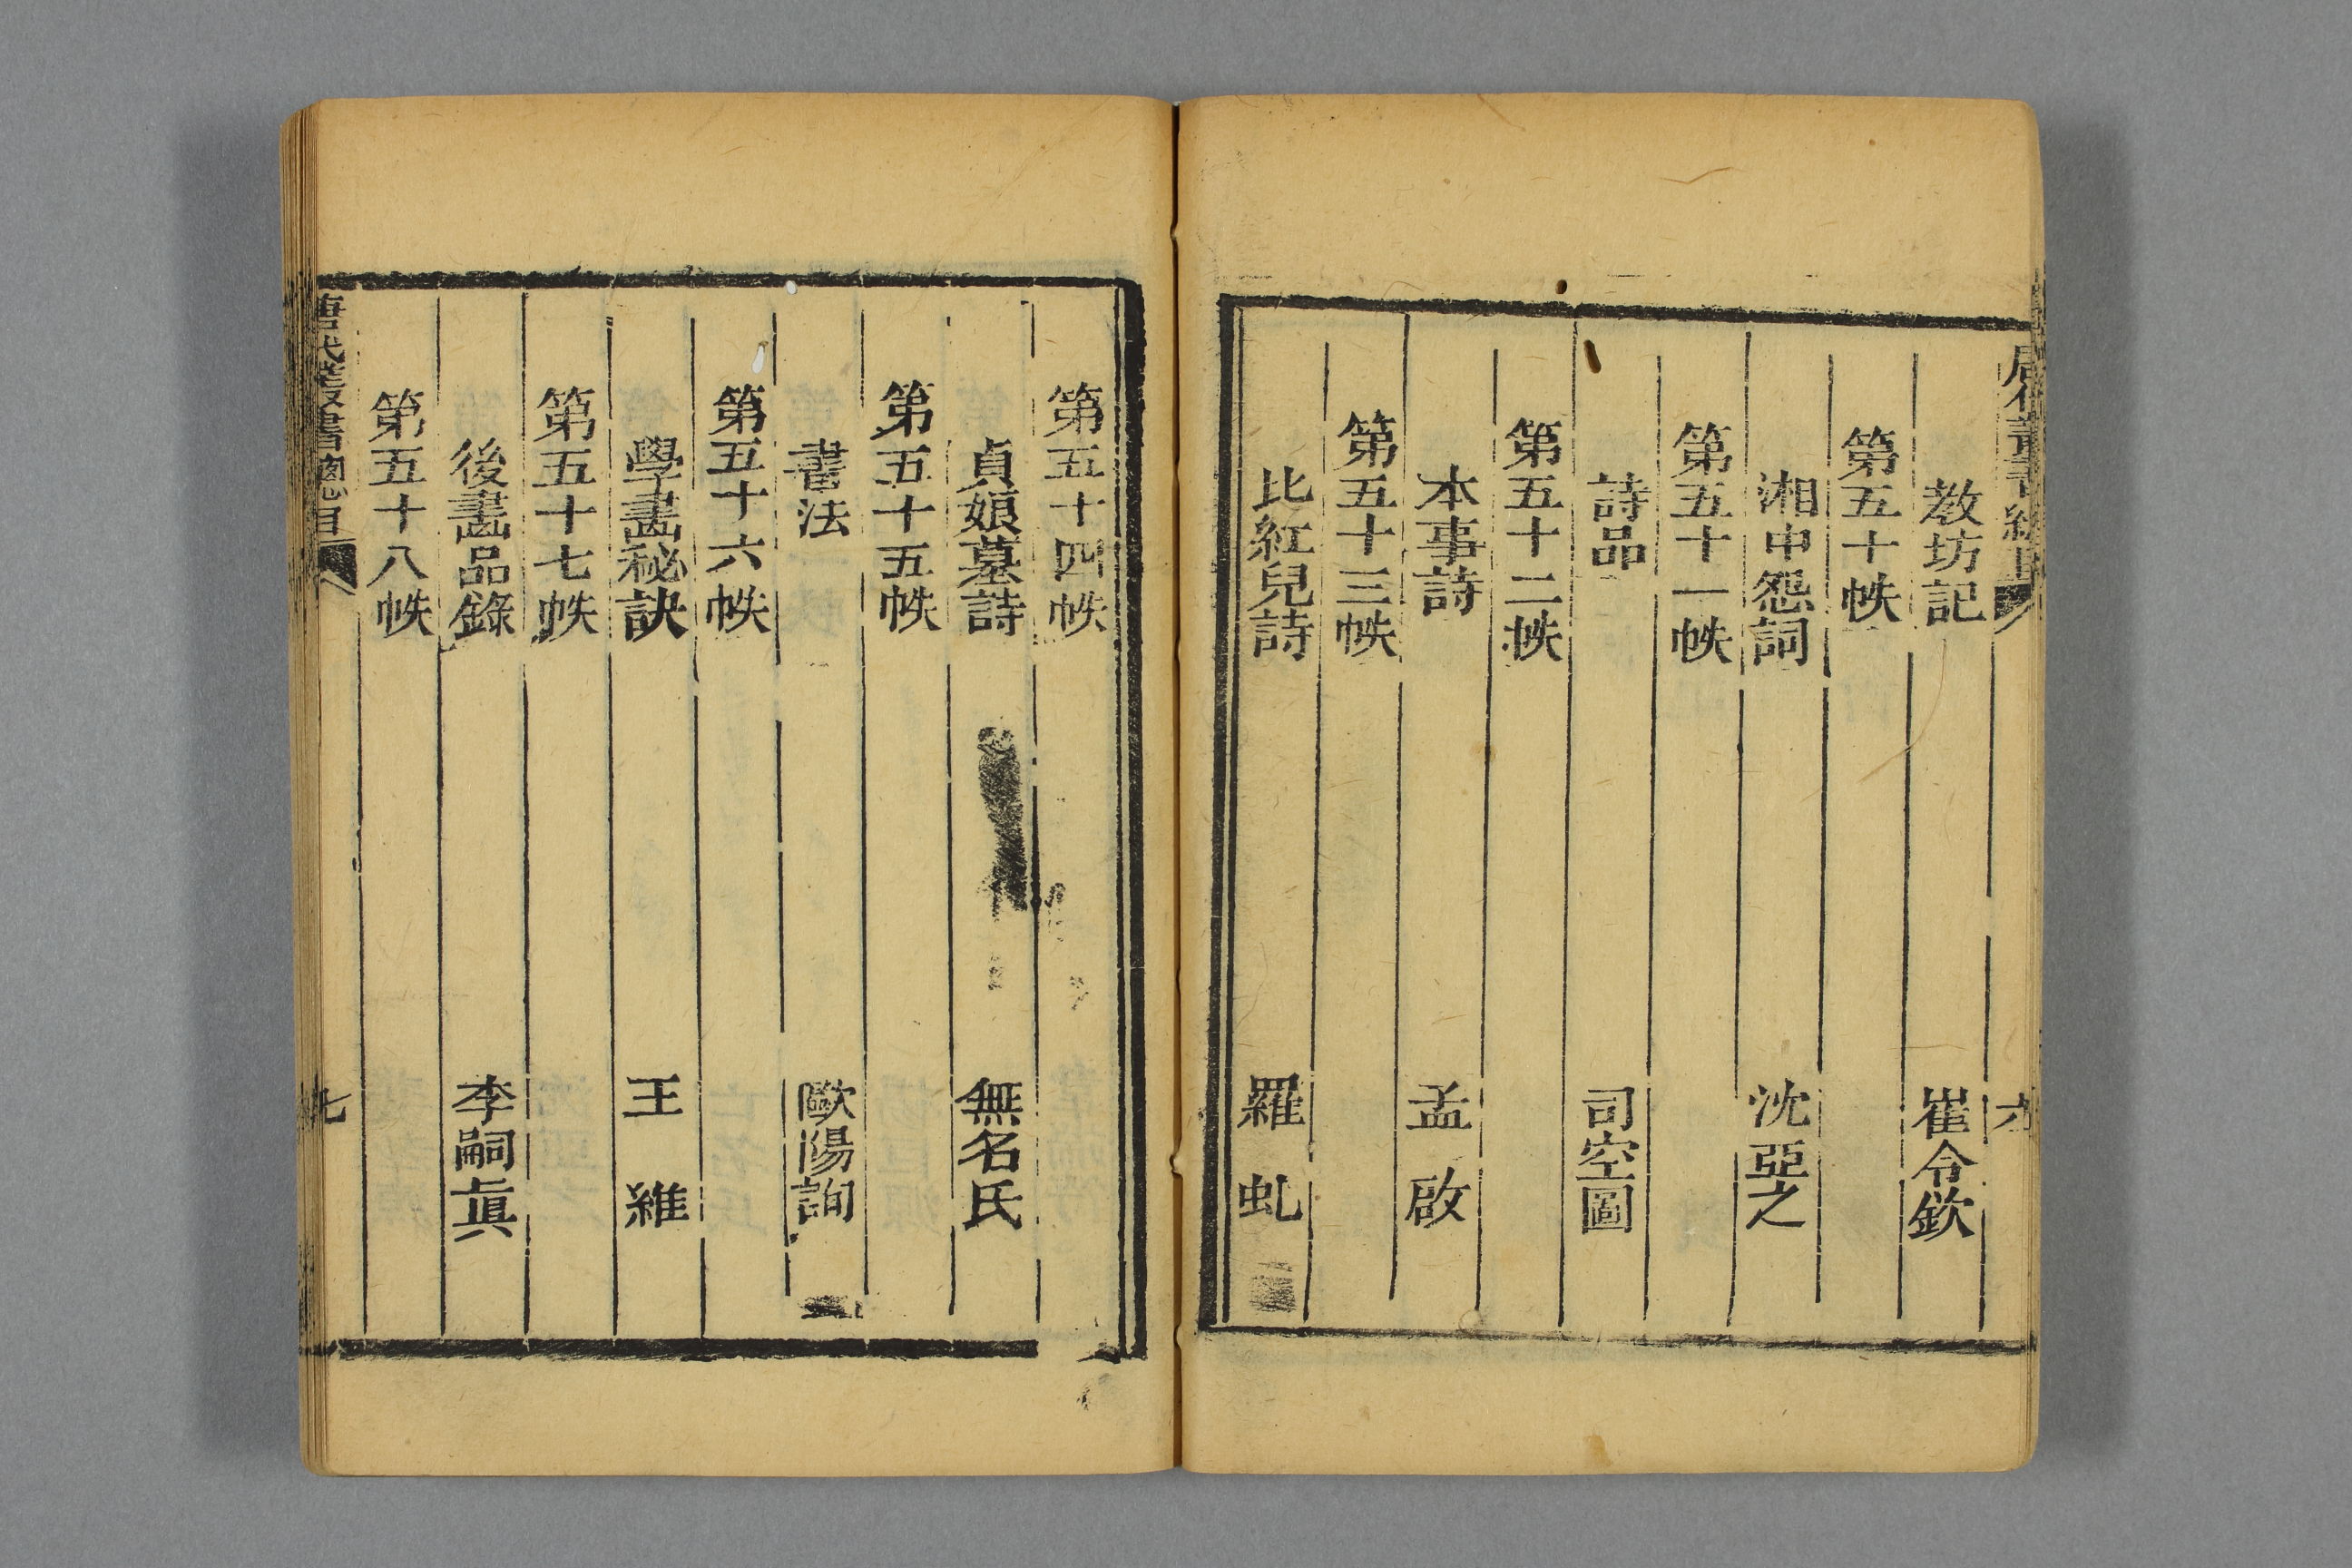 唐代叢書總目 六
教坊記 崔令欽
第五十帙
湘中怨詞 沈亞之
第五十一帙
詩品 司空圖
第五十二帙
本事詩 孟啟
第五十三帙
比紅兒詩 羅虬
第五十四帙
貞娘墓詩 無名氏
第五十五帙
書法 歐陽詢
第五十六帙
學畫秘訣 王維
第五十七帙
後畫品錄 李嗣眞
第五十八帙
唐代叢書總目 七